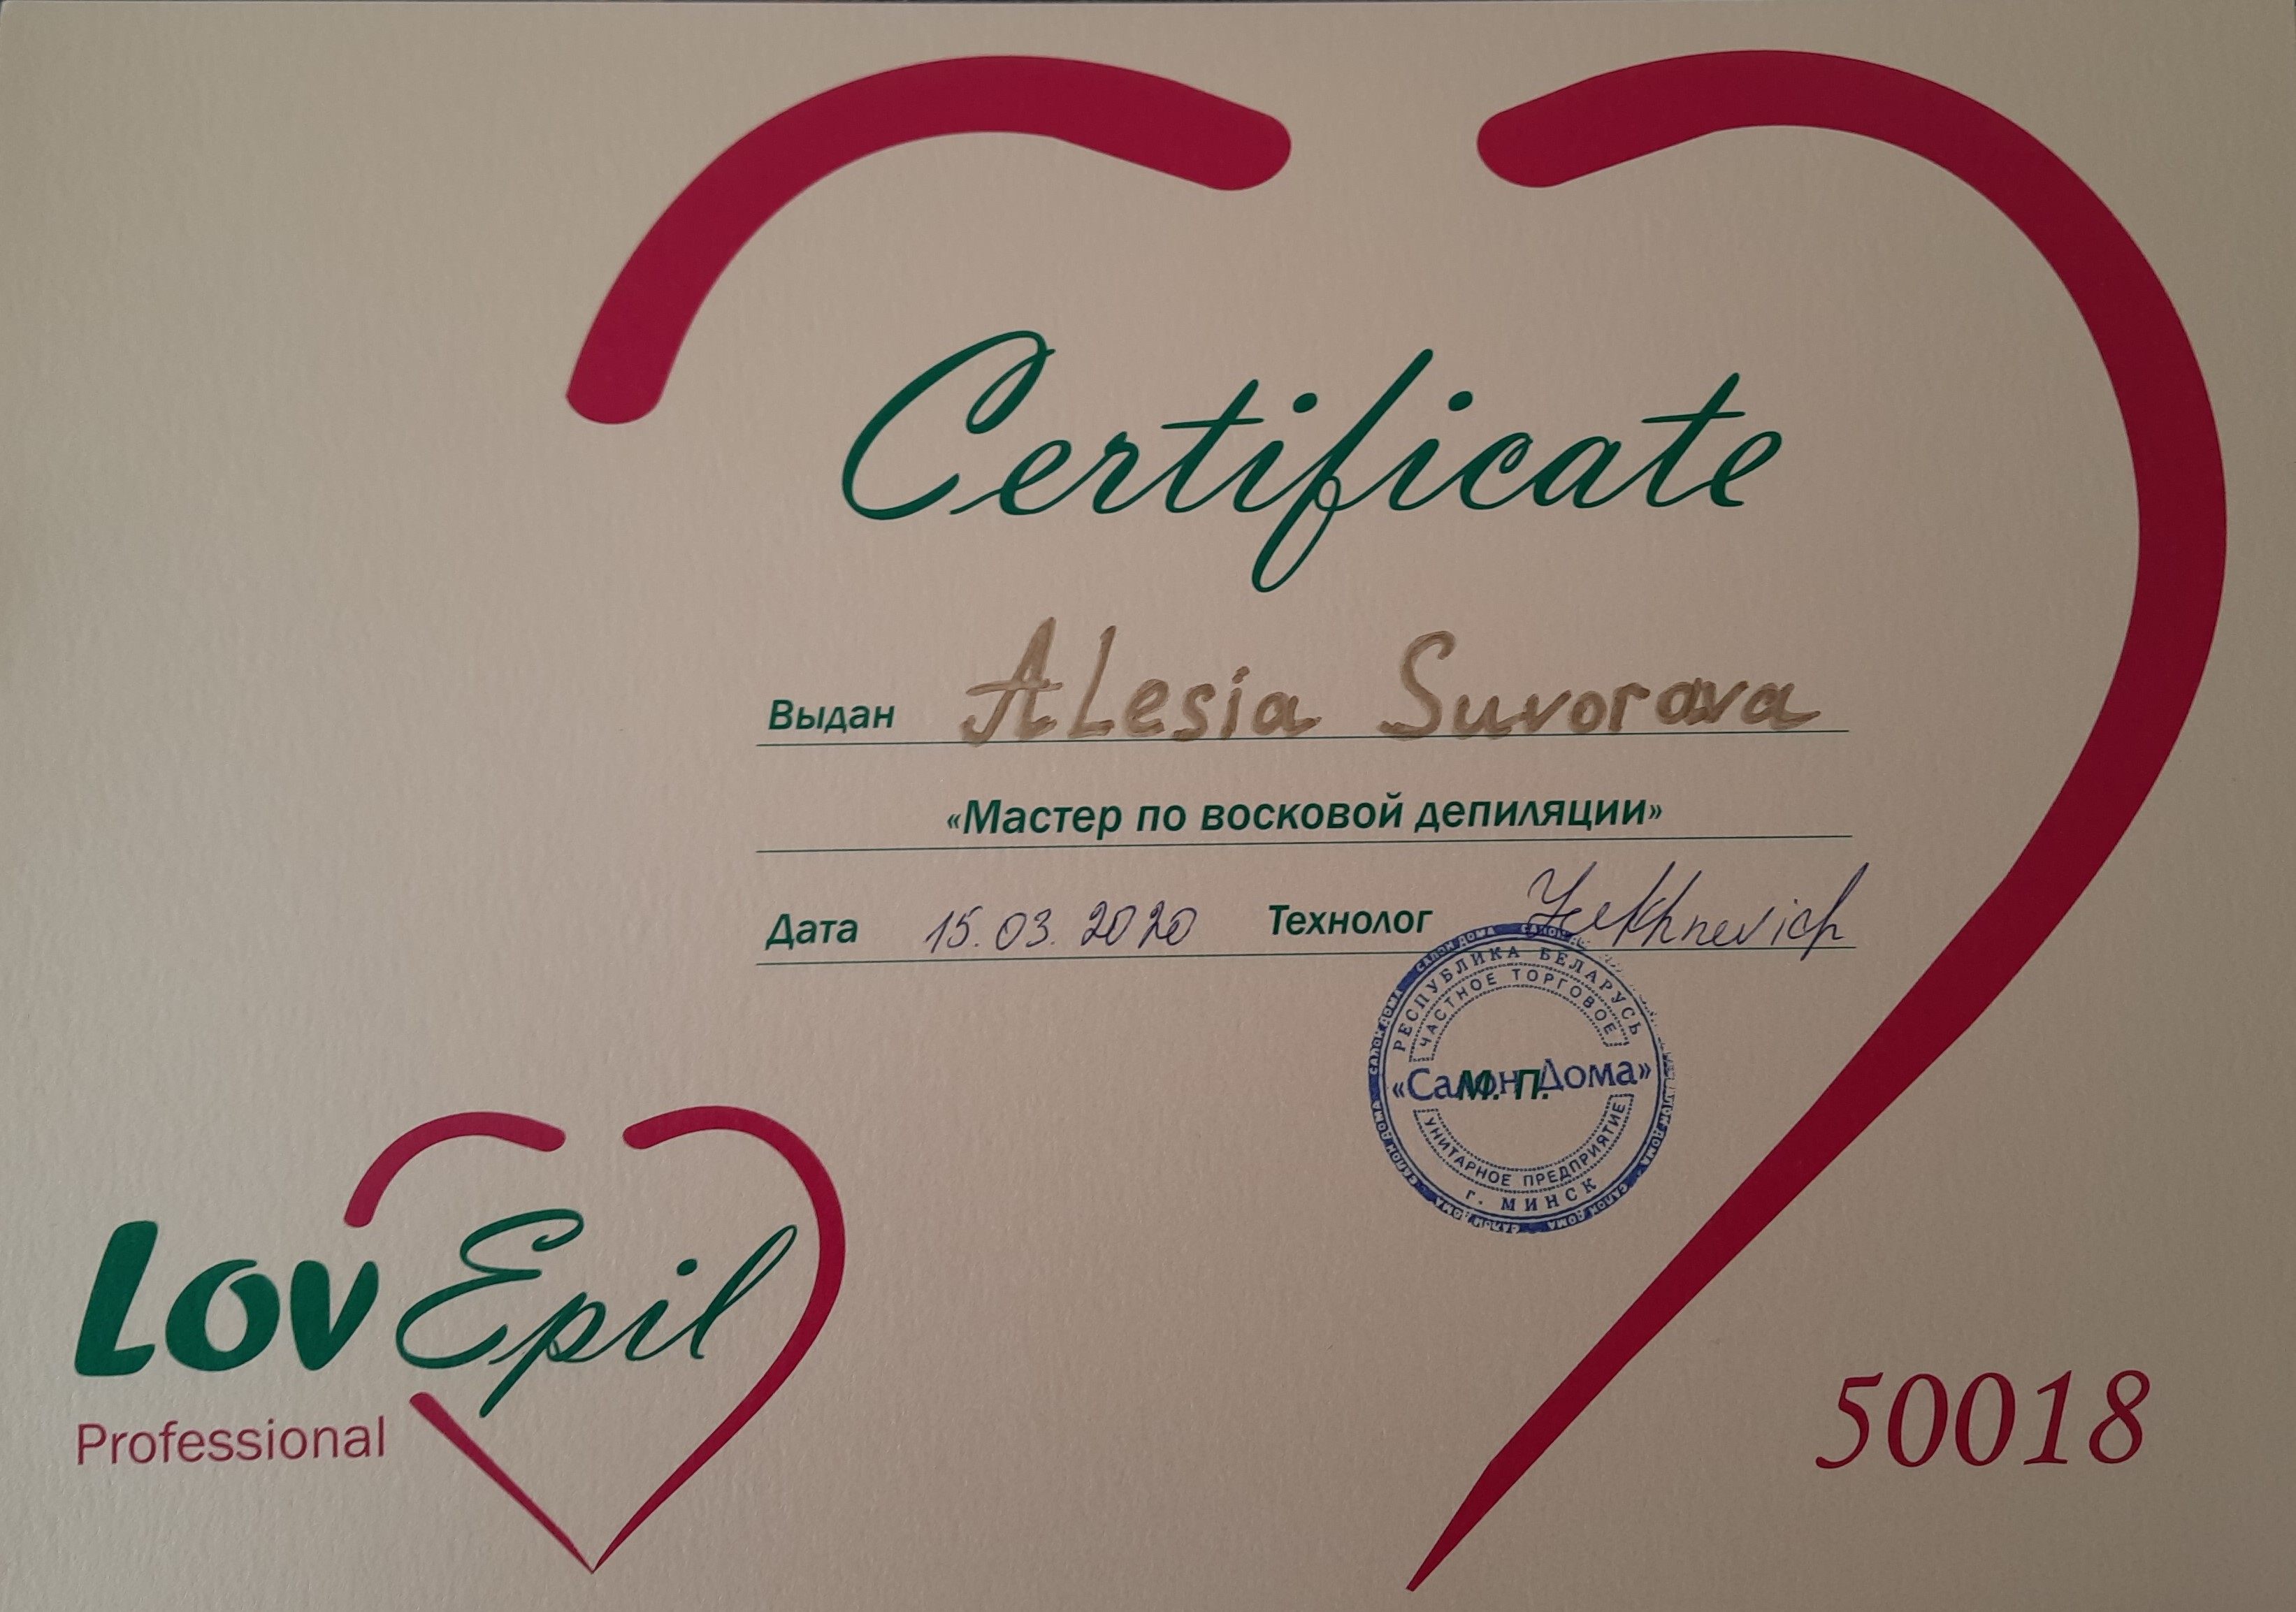 Certificate
Выдан ALesia Suvorova
«Мастер по восковой депиляции»
Дата 15.03.2020 Технолог
РЕСПУБЛИКА БЕЛАРУСЬ
ЧАСТНОЕ ТОРГОВОЕ
«Салон Дома»
М. П.
УНИТАРНОЕ ПРЕДПРИЯТИЕ
г. МИНСК
Lov Epil
Professional
50018